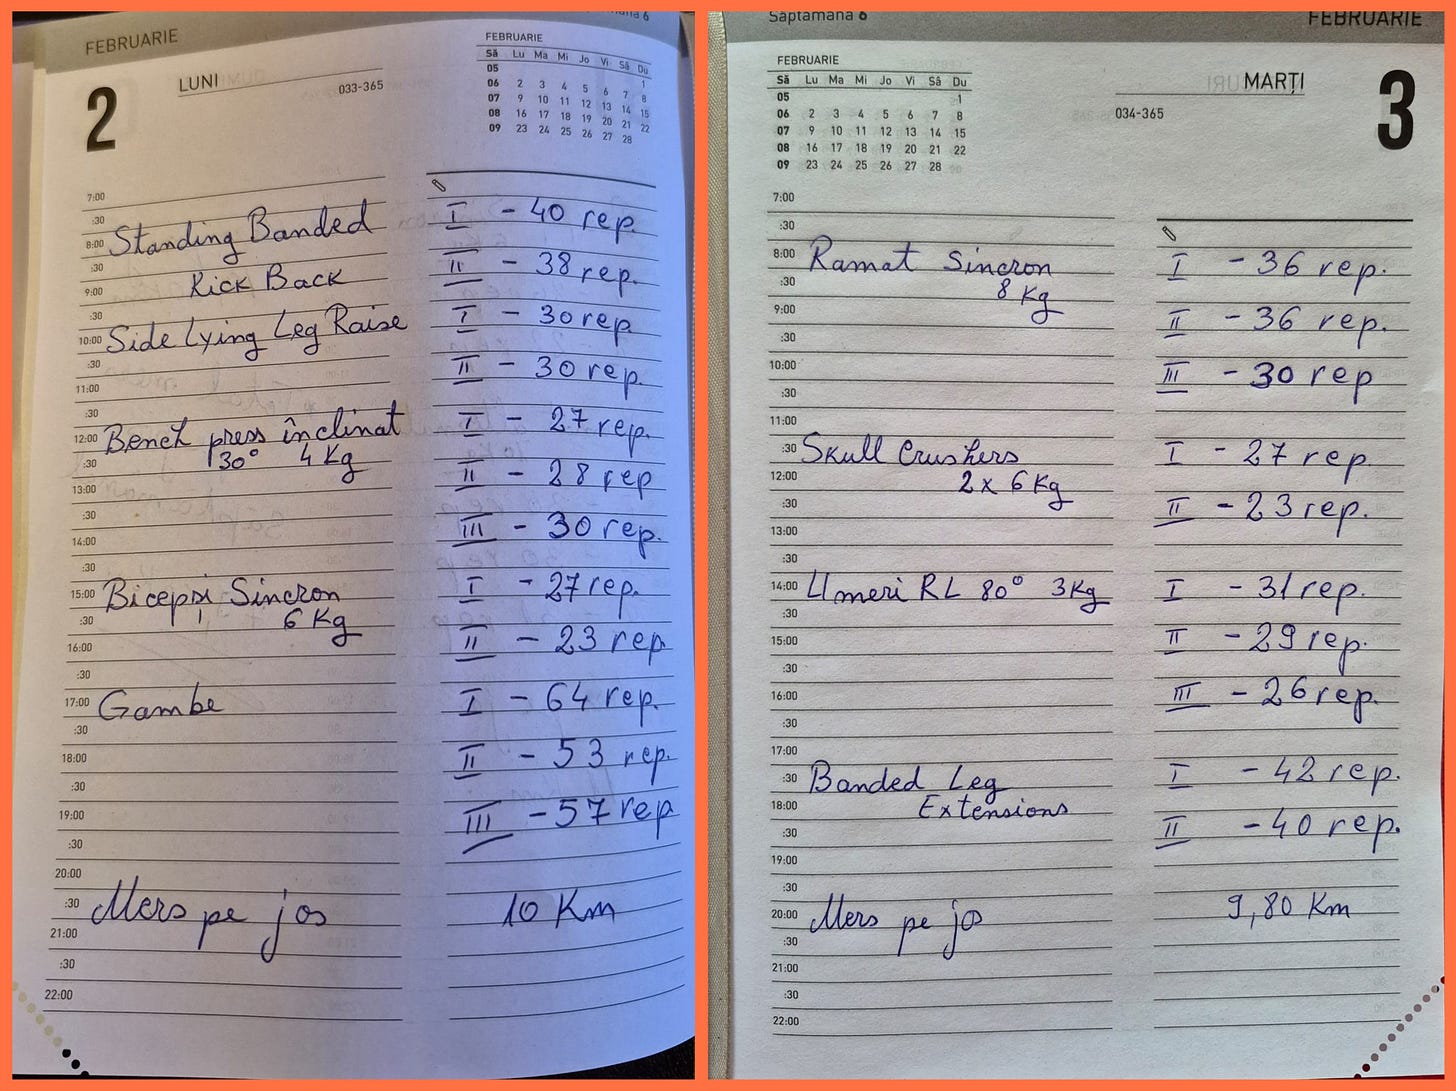 FEBRUARIE
2
LUNI
033-365
FEBRUARIE
Să Lu Ma Mi Jo Vi Sâ Du
05 1
06 2 3 4 5 6 7 8
07 9 10 11 12 13 14 15
08 16 17 18 19 20 21 22
09 23 24 25 26 27 28
7:00
:30 I - 40 rep.
8:00 Standing Banded
:30 II - 38 rep.
9:00 Kick Back
:30 I - 30 rep
10:00 Side Lying Leg Raise
:30 II - 30 rep.
11:00
:30 I - 27 rep.
12:00 Bench press înclinat
:30 30° 4 Kg II - 28 rep
13:00
:30 III - 30 rep.
14:00
:30 I - 27 rep.
15:00 Bicepși Sincron
:30 6 Kg II - 23 rep
16:00
:30
17:00 Gambe I - 64 rep.
:30
18:00 II - 53 rep.
:30
19:00 III - 57 rep
:30
20:00
:30 Mers pe jos 10 Km
21:00
:30
22:00
Săptămâna 6
FEBRUARIE
FEBRUARIE
Să Lu Ma Mi Jo Vi Sâ Du
05 1
06 2 3 4 5 6 7 8
07 9 10 11 12 13 14 15
08 16 17 18 19 20 21 22
09 23 24 25 26 27 28
MARȚI
034-365
3
7:00
:30
8:00 Ramat Sincron I - 36 rep.
:30 8 Kg
9:00 II - 36 rep.
:30
10:00 III - 30 rep
:30
11:00
:30 Skull Crushers I - 27 rep.
12:00 2 x 6 Kg
:30 II - 23 rep.
13:00
:30
14:00 Umeri RL 80° 3 Kg I - 31 rep.
:30
15:00 II - 29 rep.
:30
16:00 III - 26 rep.
:30
17:00
:30 Banded Leg I - 42 rep.
18:00 Extensions
:30 II - 40 rep.
19:00
:30
20:00 Mers pe jos 9,80 Km
:30
21:00
:30
22:00